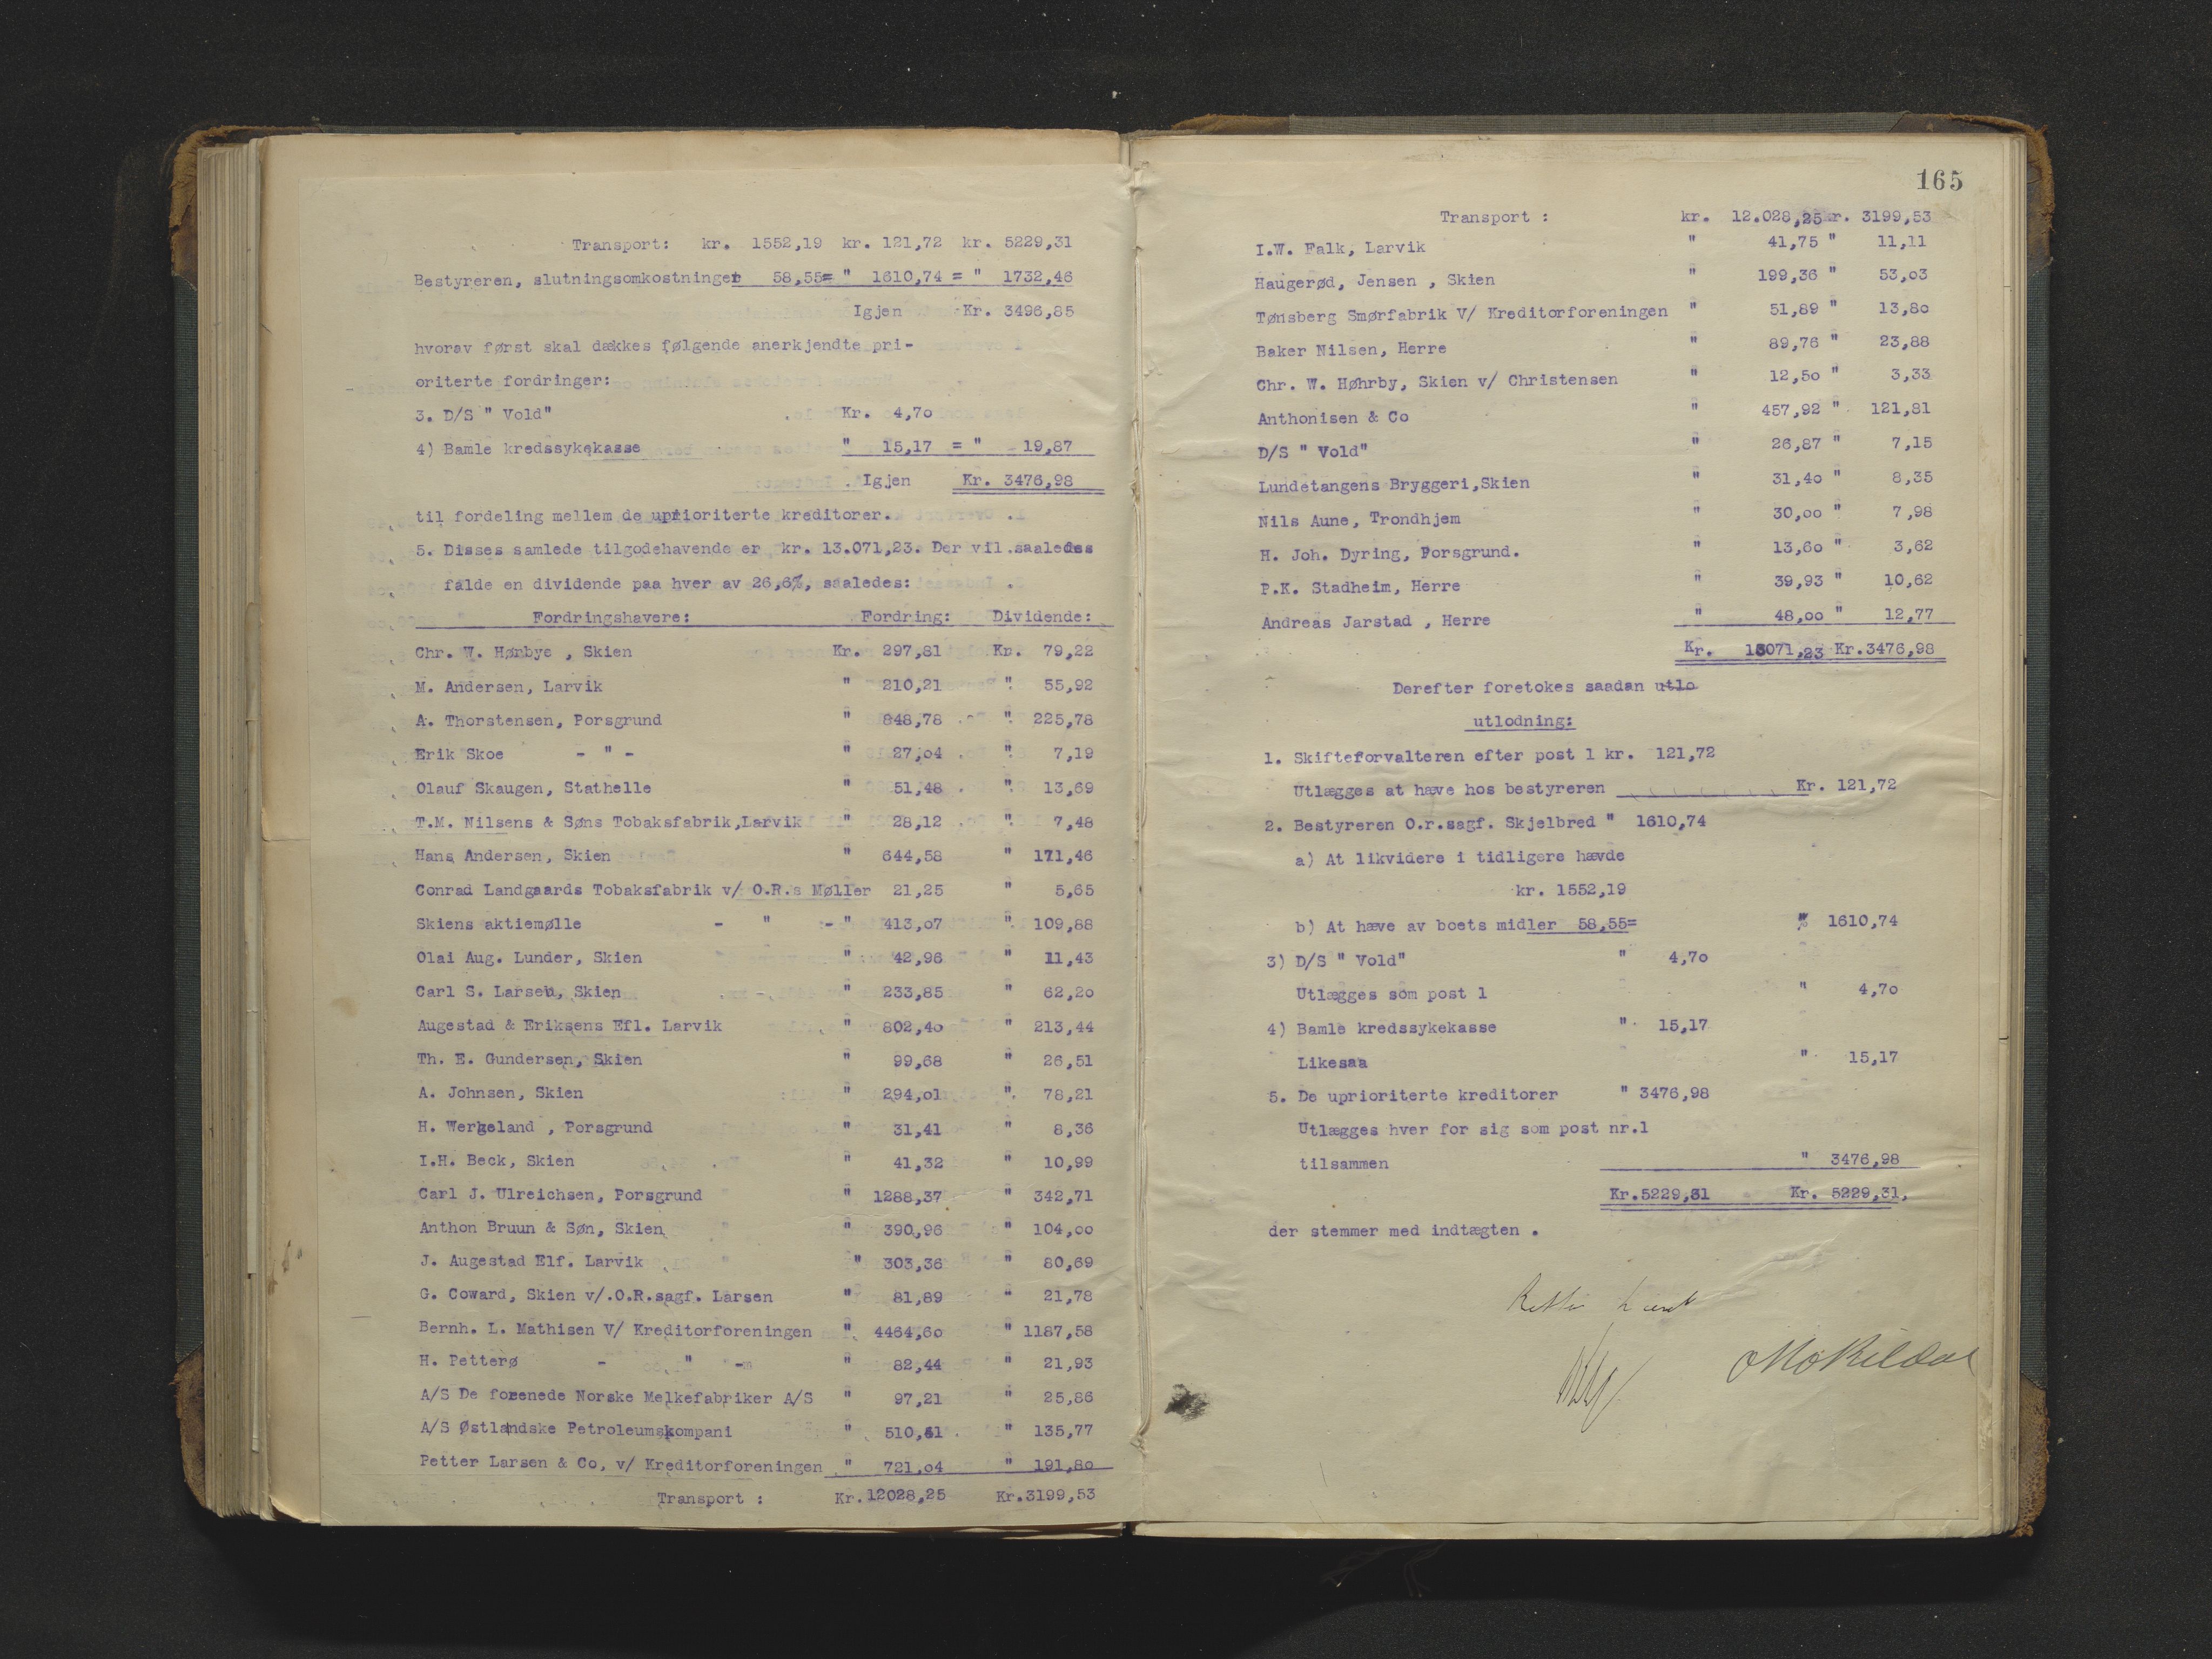 Transport: kr. 1552,19 kr. 121,72 kr. 5229,31
Bestyreren, slutningsomkostninger 58,55= " 1610,74 = " 1732,46
Igjen Kr. 3496,85
hvorav først skal dækkes følgende anerkjendte pri-
oriterte fordringer:
3. D/S " Vold" Kr. 4,70
4) Bamle kredssykekasse " 15,17 = " 19,87
Igjen Kr. 3476,98
til fordeling mellem de uprioriterte kreditorer.
5. Disses samlede tilgodehavende er kr. 13.071,23. Der vil saaledes
falde en dividende paa hver av 26,6%, saaledes:
Fordringshavere: Fordring: Dividende:
Chr. W. Hørbye , Skien Kr. 297,81 Kr. 79,22
M. Andersen, Larvik " 210,21 " 55,92
A. Thorstensen, Porsgrund " 848,78 " 225,78
Erik Skoe - " - " 27,04 " 7,19
Olauf Skaugen, Stathelle " 51,48 " 13,69
T.M. Nilsens & Søns Tobaksfabrik,Larvik " 28,12 " 7,48
Hans Andersen, Skien " 644,58 " 171,46
Conrad Landgaards Tobaksfabrik v/ O.R.s Møller 21,25 " 5,65
Skiens aktiemølle - " - " 413,07 " 109,88
Olai Aug. Lunder, Skien " 42,96 " 11,43
Carl S. Larsen, Skien " 233,85 " 62,20
Augestad & Eriksens Efl. Larvik " 802,40 " 213,44
Th. E. Gundersen, Skien " 99,68 " 26,51
A. Johnsen, Skien " 294,01 " 78,21
H. Wergeland , Porsgrund " 31,41 " 8,36
I.H. Beck, Skien " 41,32 " 10,99
Carl J. Ulreichsen, Porsgrund " 1288,37 " 342,71
Anthon Bruun & Søn, Skien " 390,96 " 104,00
J. Augestad Elf. Larvik " 303,36 " 80,69
G. Coward, Skien v/.O.R.sagf. Larsen " 81,89 " 21,78
Bernh. L. Mathisen V/ Kreditorforeningen " 4464,60 " 1187,58
H. Petterø - " - " 82,44 " 21,93
A/S De forenede Norske Melkefabriker A/S " 97,21 " 25,86
A/S Østlandske Petroleumskompani " 510,41 " 135,77
Petter Larsen & Co, v/ Kreditorforeningen " 721,04 " 191,80
Transport : Kr. 12028,25 Kr.3199,53
165
Transport : kr. 12.028,25 kr. 3199,53
I.W. Falk, Larvik " 41,75 " 11,11
Haugerød, Jensen , Skien " 199,36 " 53,03
Tønsberg Smørfabrik V/ Kreditorforeningen " 51,89 " 13,80
Baker Nilsen, Herre " 89,76 " 23,88
Chr. W. Høhrby, Skien v/ Christensen " 12,50 " 3,33
Anthonisen & Co " 457,92 " 121,81
D/S " Vold" " 26,87 " 7,15
Lundetangens Bryggeri,Skien " 31,40 " 8,35
Nils Aune, Trondhjem " 30,00 " 7,98
H. Joh. Dyring, Porsgrund. " 13,60 " 3,62
P.K. Stadheim, Herre " 39,93 " 10,62
Andreas Jarstad , Herre " 48,00 " 12,77
Kr. 13071,23 Kr.3476,98
Derefter foretokes saadan utlo
utlodning:
1. Skifteforvalteren efter post 1 kr. 121,72
Utlægges at hæve hos bestyreren Kr. 121,72
2. Bestyreren O.r.sagf. Skjelbred " 1610,74
a) At likvidere i tidligere hævde
kr. 1552,19
b) At hæve av boets midler 58,55= " 1610,74
3) D/S " Vold" " 4,70
Utlægges som post 1 " 4,70
4) Bamle kredssykekasse " 15,17
Likesaa " 15,17
5. De uprioriterte kreditorer " 3476,98
Utlægges hver for sig som post nr.1
tilsammen " 3476,98
Kr.5229,31 Kr. 5229,31.
der stemmer med indtægten .
Retten hævet